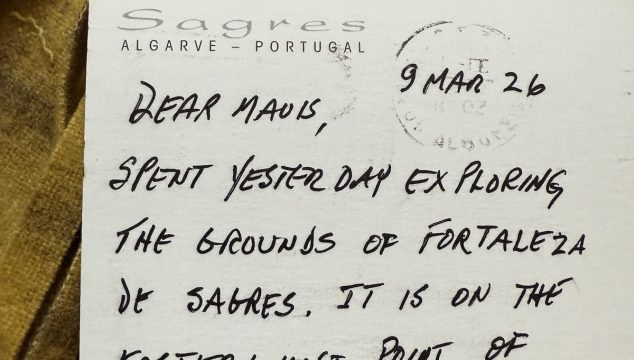 Sagres
ALGARVE – PORTUGAL
9 MAR 26
DEAR MAVIS,
SPENT YESTERDAY EXPLORING
THE GROUNDS OF FORTALEZA
DE SAGRES. IT IS ON THE
POINT OF